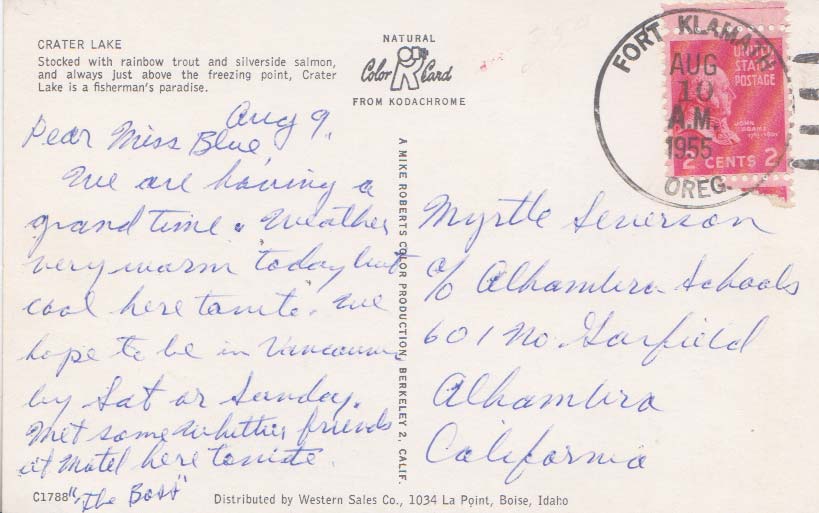 CRATER LAKE
Stocked with rainbow trout and silverside salmon,
and always just above the freezing point, Crater
Lake is a fisherman's paradise.
NATURAL
Color Card
FROM KODACHROME
FORT KLAMATH
AUG
10
A.M.
1955
OREG.
UNITED
STATES
POSTAGE
JOHN
ADAMS
2 CENTS 2
Aug 9.
Dear Miss Blue
We are having a
grand time. Weather
very warm today but
cool here tonite. We
hope to be in Vancouver
by Sat or Sunday.
Met some Whittier friends
at Motel here tonite.
"The Boss"
A MIKE ROBERTS COLOR PRODUCTION, BERKELEY 2, CALIF.
Myrtle Severson
c/o Alhambra Schools
601 No. Garfield
Alhambra
California
C1788
Distributed by Western Sales Co., 1034 La Point, Boise, Idaho